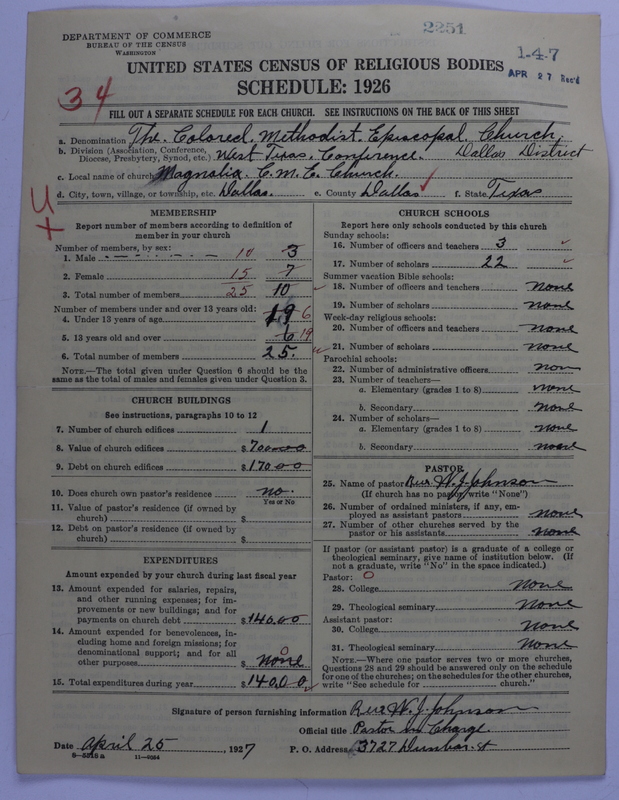 2251
DEPARTMENT OF COMMERCE
BUREAU OF THE CENSUS
WASHINGTON
1-4-7
APR 27 Rec'd
UNITED STATES CENSUS OF RELIGIOUS BODIES
SCHEDULE: 1926
34
FILL OUT A SEPARATE SCHEDULE FOR EACH CHURCH. SEE INSTRUCTIONS ON THE BACK OF THIS SHEET
a. Denomination The Colored Methodist Episcopal Church
b. Division (Association, Conference, Diocese, Presbytery, Synod, etc.) West Texas Conference. Dallas District
c. Local name of church Magnalia C.M.E. Church.
d. City, town, village, or township, etc. Dallas. e. County Dallas f. State Texas
MEMBERSHIP
Report number of members according to definition of
member in your church
Number of members, by sex:
1. Male 10 3
2. Female 15 7
3. Total number of members 25 10
Number of members under and over 13 years old:
4. Under 13 years of age 19 6
5. 13 years old and over 6 19
6. Total number of members 25.
NOTE.—The total given under Question 6 should be the
same as the total of males and females given under Question 3.
CHURCH BUILDINGS
See instructions, paragraphs 10 to 12
7. Number of church edifices 1
8. Value of church edifices $ 700.00
9. Debt on church edifices $ 170.00
10. Does church own pastor's residence no.
Yes or No
11. Value of pastor's residence (if owned by
church) $
12. Debt on pastor's residence (if owned by
church) $
EXPENDITURES
Amount expended by your church during last fiscal year
13. Amount expended for salaries, repairs,
and other running expenses; for im-
provements or new buildings; and for
payments on church debt $ 140.00
14. Amount expended for benevolences, in-
cluding home and foreign missions; for
denominational support; and for all
other purposes $ none 0
15. Total expenditures during year $ 140.00
CHURCH SCHOOLS
Report here only schools conducted by this church
Sunday schools:
16. Number of officers and teachers 3
17. Number of scholars 22
Summer vacation Bible schools:
18. Number of officers and teachers none
19. Number of scholars none
Week-day religious schools:
20. Number of officers and teachers none
21. Number of scholars none
Parochial schools:
22. Number of administrative officers non
23. Number of teachers—
a. Elementary (grades 1 to 8) none
b. Secondary none
24. Number of scholars—
a. Elementary (grades 1 to 8) none
b. Secondary none
PASTOR
25. Name of pastor Rev W. J. Johnson
(If church has no pastor, write "None")
26. Number of ordained ministers, if any, em-
ployed as assistant pastors none
27. Number of other churches served by the
pastor or his assistants none
If pastor (or assistant pastor) is a graduate of a college or
theological seminary, give name of institution below. (If
not a graduate, write "No" in the space indicated.)
Pastor: 0
28. College none
29. Theological seminary none
Assistant pastor:
30. College none
31. Theological seminary none
NOTE.—Where one pastor serves two or more churches,
Questions 28 and 29 should be answered only on the schedule
for one of the churches; on the schedules for the other churches,
write "See schedule for church."
Signature of person furnishing information Rev W. J. Johnson
Official title Pastor in Charge
Date April 25, 1927 P. O. Address 3727 Dunbar. st
8—5516 a 11—9054